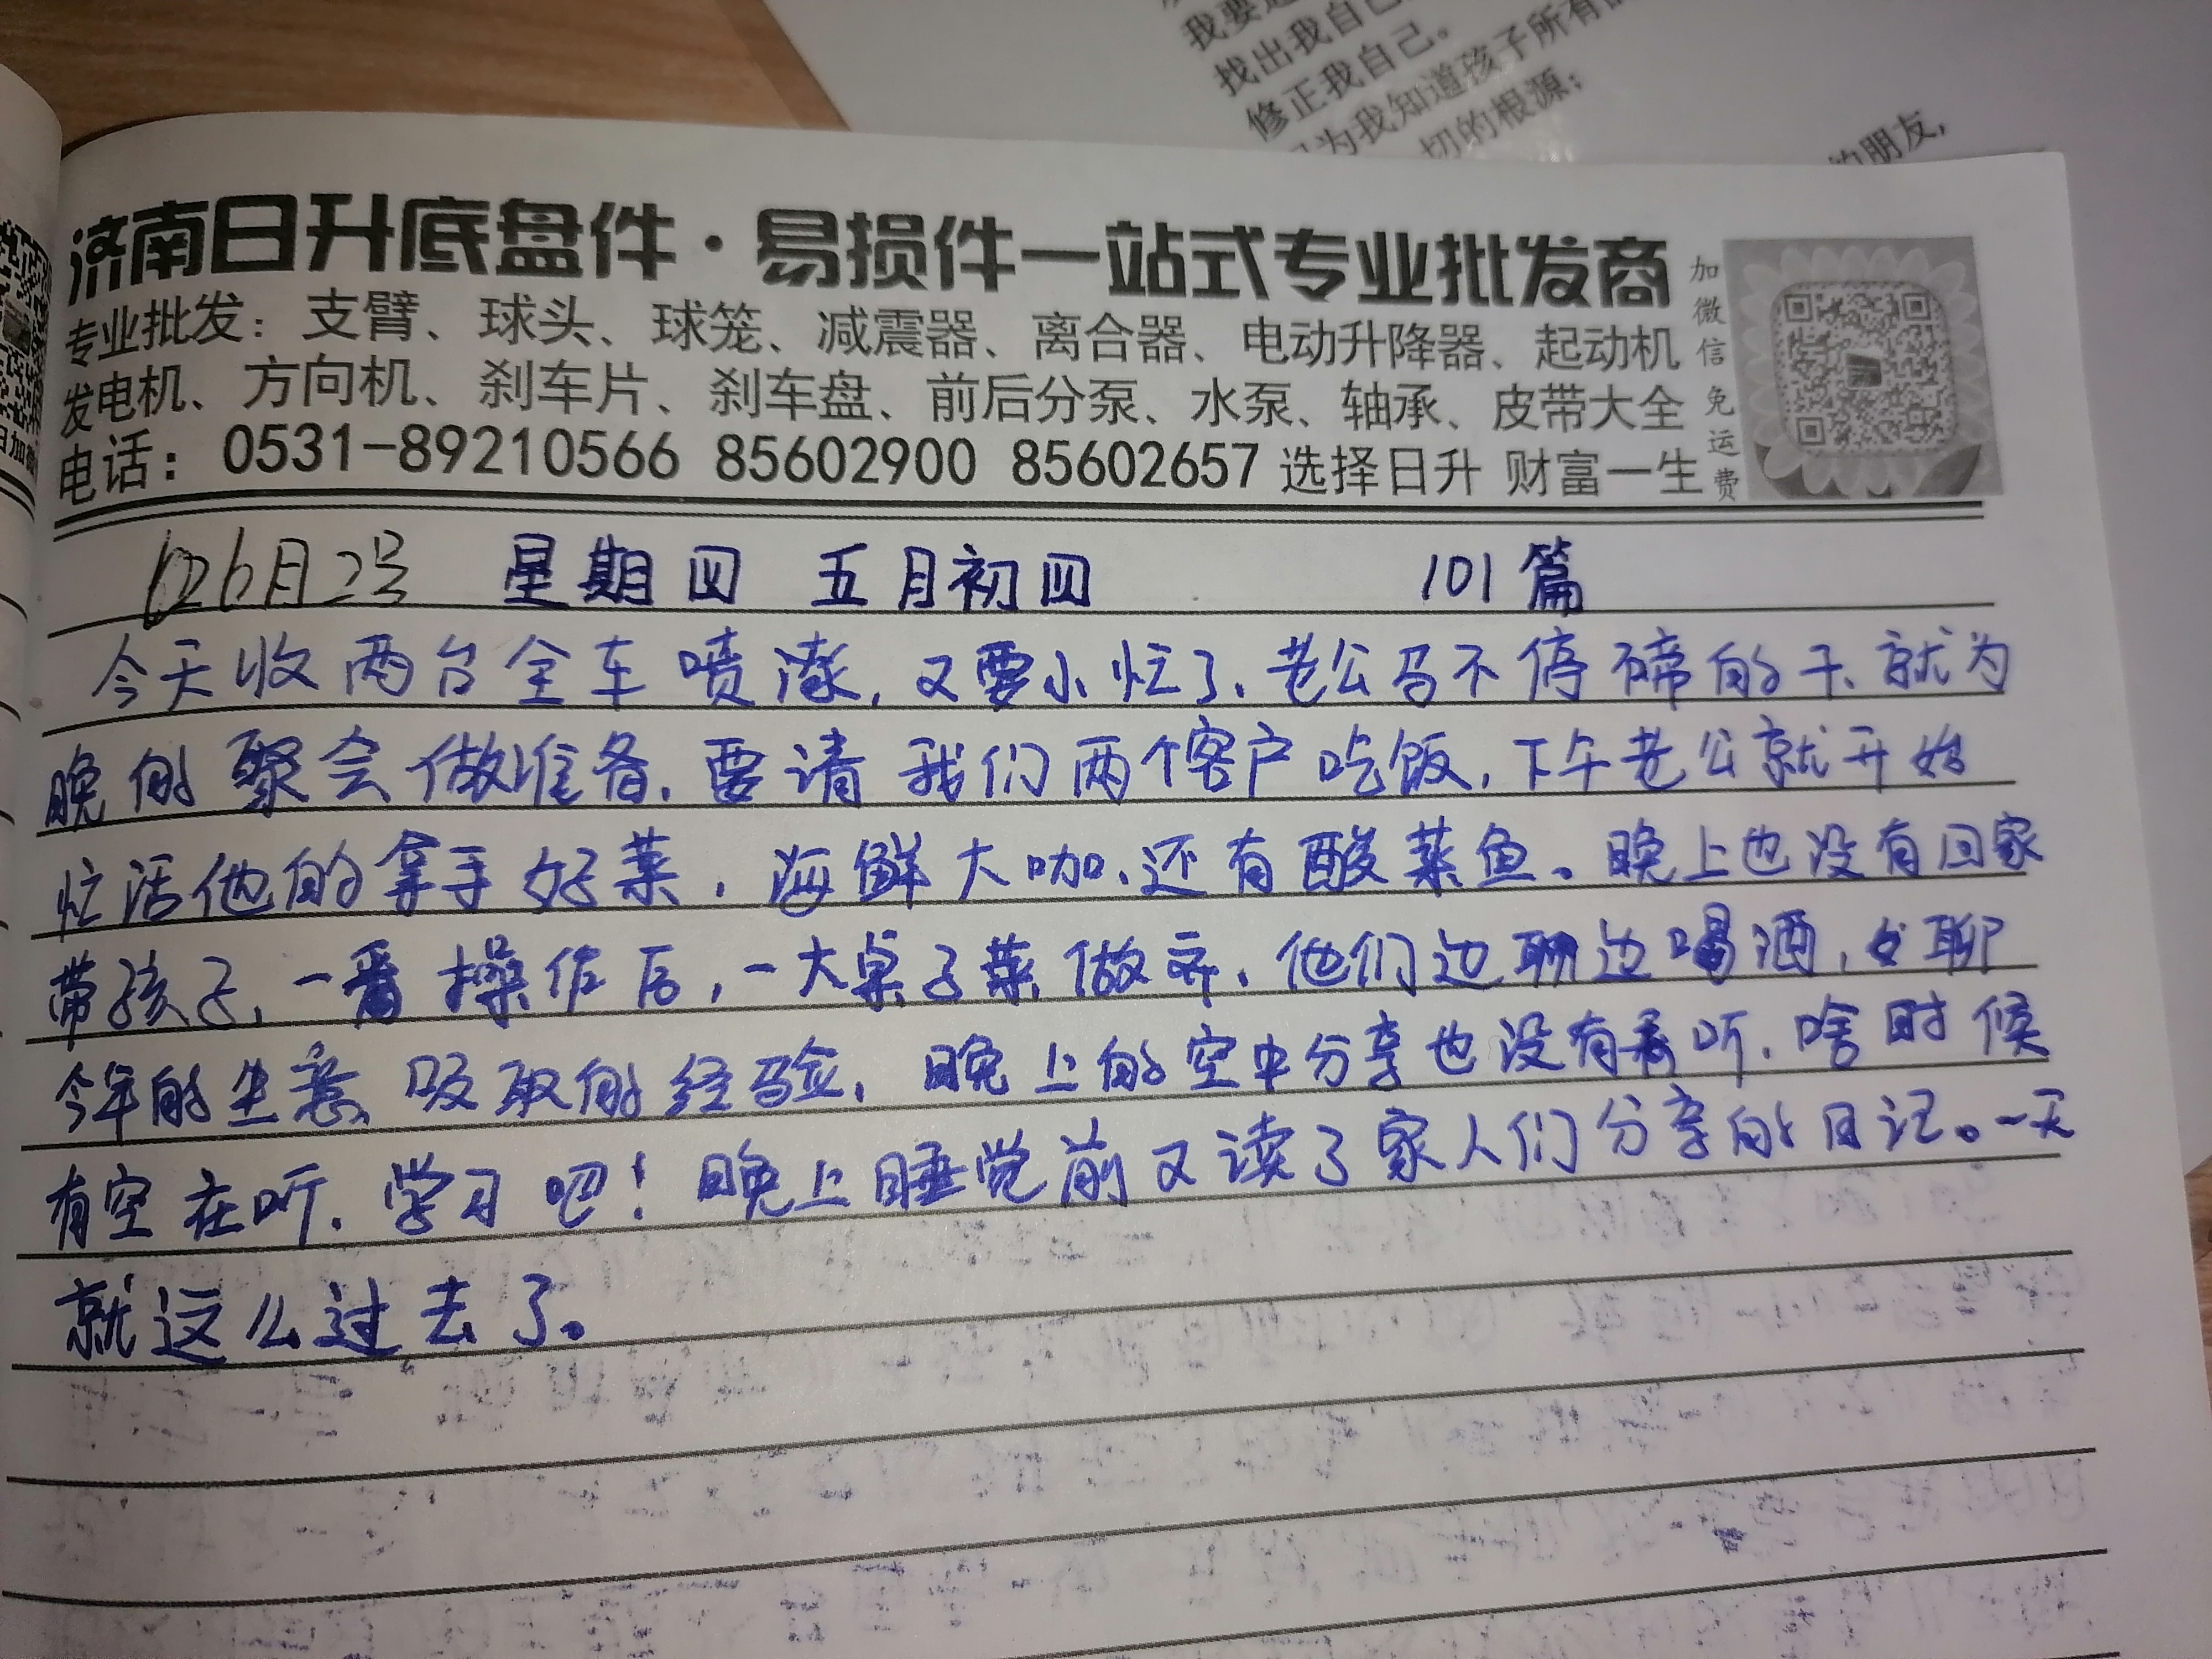 我要
找出我自己
修正我自己。
为我知道孩子所有
切的根源；
的朋友，
济南日升底盘件·易损件一站式专业批发商
专业批发：支臂、球头、球笼、减震器、离合器、电动升降器、起动机
发电机、方向机、刹车片、刹车盘、前后分泵、水泵、轴承、皮带大全
电话：0531-89210566 85602900 85602657 选择日升 财富一生
加微信免运费
6月2号 星期四 五月初四 101篇
今天收两台全车喷漆，又要小忙了、老公马不停蹄的干、就为
晚的聚会做准备、要请我们两个客户吃饭，下午老公就开始
忙活他的拿手好菜，海鲜大咖、还有酸菜鱼。晚上也没有回家
带孩子、一番操作后，一大桌子菜做齐、他们边聊边喝酒，聊
今年的生意、吸取的经验，晚上的空中分享也没有看听、啥时候
有空在听、学习吧！晚上睡觉前又读了家人们分享的日记。一天
就这么过去了。